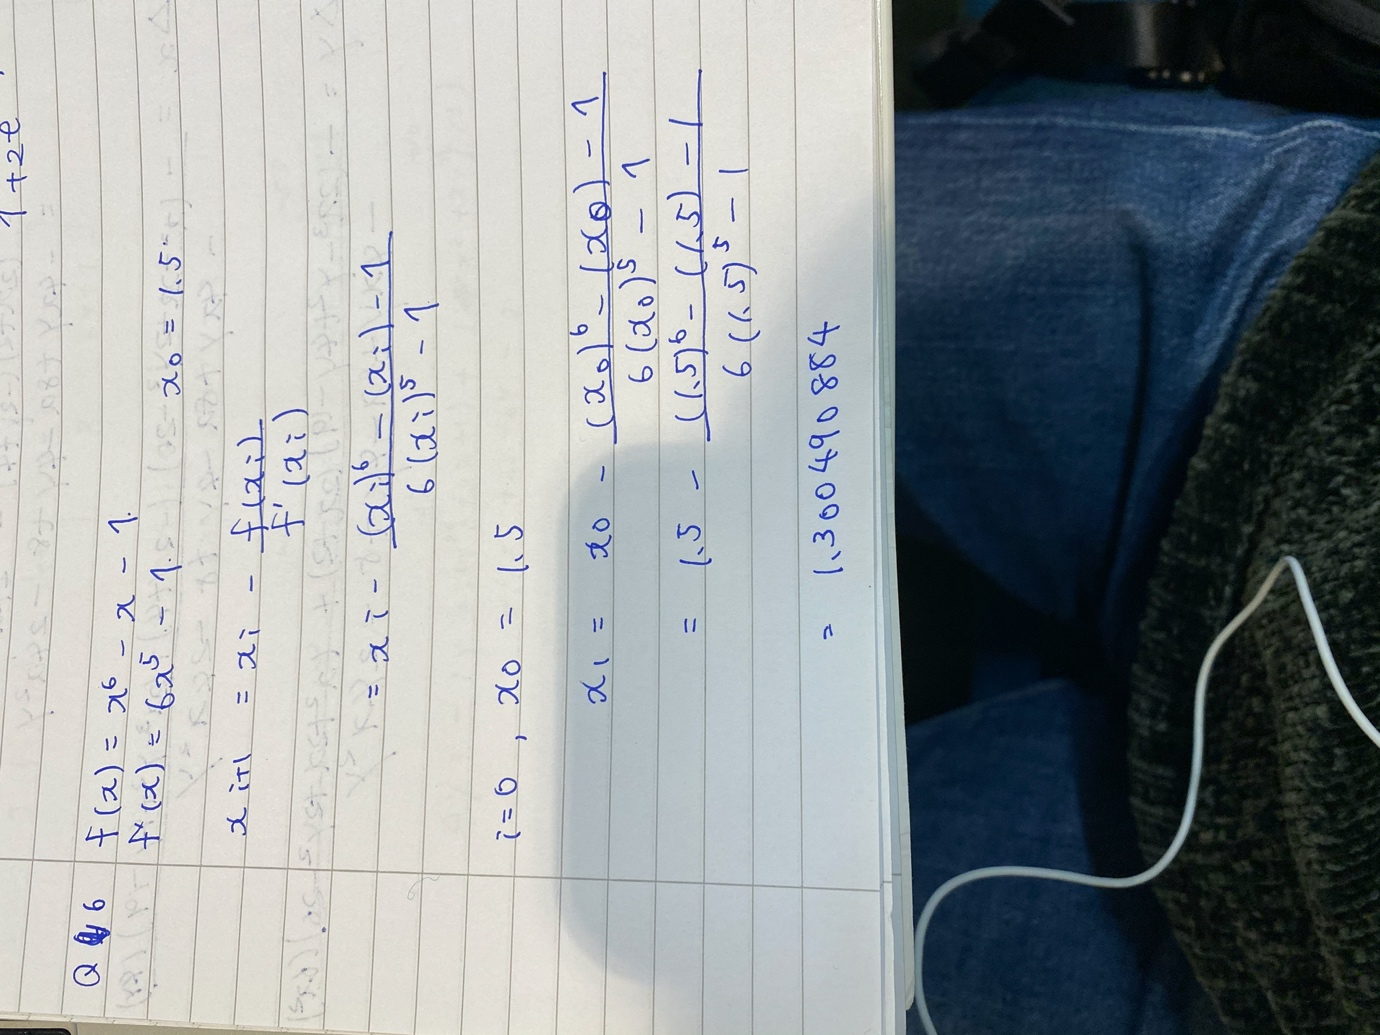 1 + 2e
Q 6 f(x) = x⁶ - x - 1.
f'(x) = 6x⁵ - 1. x₀ = 1.5.
xᵢ₊₁ = xᵢ - f(xᵢ)
f'(xᵢ)
= xᵢ - (xᵢ)⁶ - (xᵢ) - 1
6(xᵢ)⁵ - 1
i = 0, x₀ = 1.5
x₁ = x₀ - (x₀)⁶ - (x₀) - 1
6(x₀)⁵ - 1
= 1.5 - (1.5)⁶ - (1.5) - 1
6(1.5)⁵ - 1
= 1.300490884